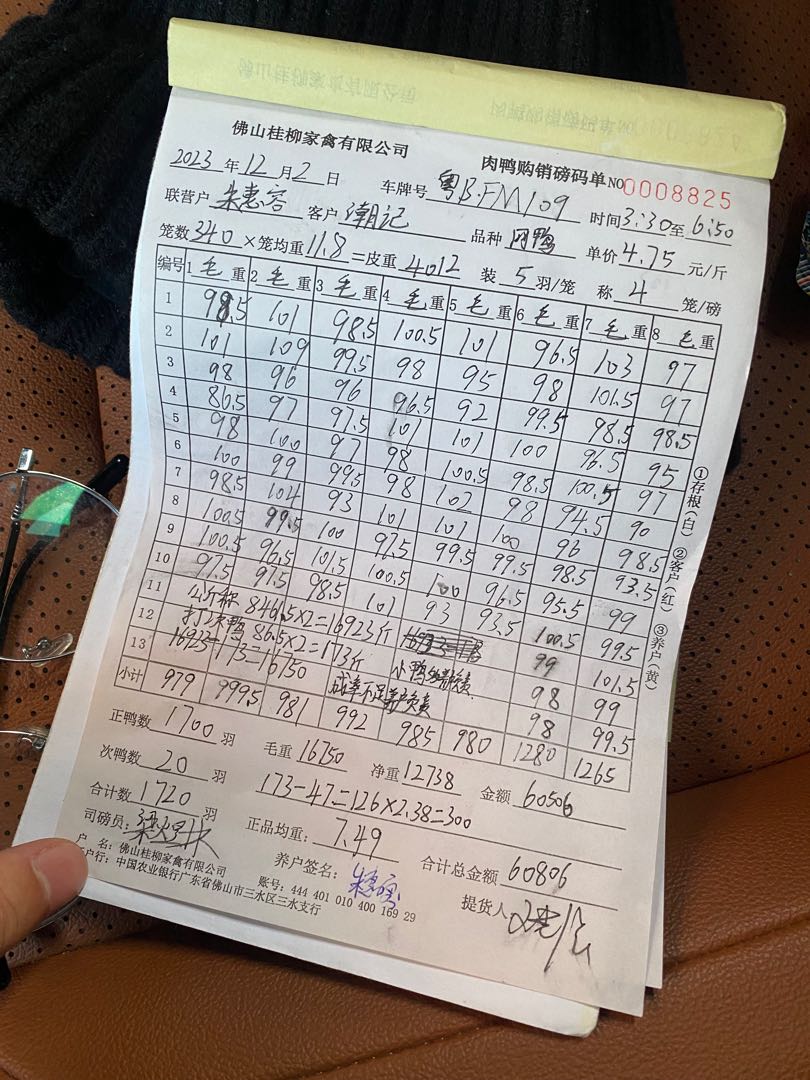 佛山桂柳家禽有限公司 肉鸭购销磅码单 NO 0008825
2023 年 12 月 2 日 车牌号 粤B.FM109 时间 3:30 至 6:50
联营户 朱惠容 客户 潮记 品种 网鸭 单价 4.75 元/斤
笼数 340 ×笼均重 11.8 =皮重 4012 装 5 羽/笼 称 4 笼/磅
编号 1 毛重 2 毛重 3 毛重 4 毛重 5 毛重 6 毛重 7 毛重 8 毛重
1 98.5 101 98.5 100.5 101 96.5 103 97
2 101 109 99.5 98 95 98 101.5 97
3 98 96 96 96.5 92 99.5 98.5 98.5
4 86.5 97 97.5 101 101 100 96.5 95
5 98 100 97 98 100.5 98.5 100.5 97
6 100 99 99.5 98 102 98 94.5 90
7 98.5 104 93 101 101 100 96 98.5
8 100.5 99.5 100 97.5 99.5 99.5 98.5 93.5
9 100.5 96.5 101.5 100.5 100 96.5 95.5 99
10 97.5 97.5 98.5 101 93 93.5 100.5 99.5
11 公斤秤 8461.5×2=16923斤 99 101.5
12 打次鸭 86.5×2=173斤 小鸭 98 99
13 16923-173=16750 成率不足 98 99.5
小计 979 999.5 981 992 985 980 1280 1265
正鸭数 1700 羽 毛重 16750 净重 12738 金额 60506
次鸭数 20 羽 173-47=126×2.38=300
合计数 1720 羽 正品均重: 7.49 合计总金额 60806
司磅员: 养户签名: 提货人
户 名: 佛山桂柳家禽有限公司 账号: 444 401 010 400 169 29
户行: 中国农业银行广东省佛山市三水区三水支行
①存根(白) ②客户(红) ③养户(黄)